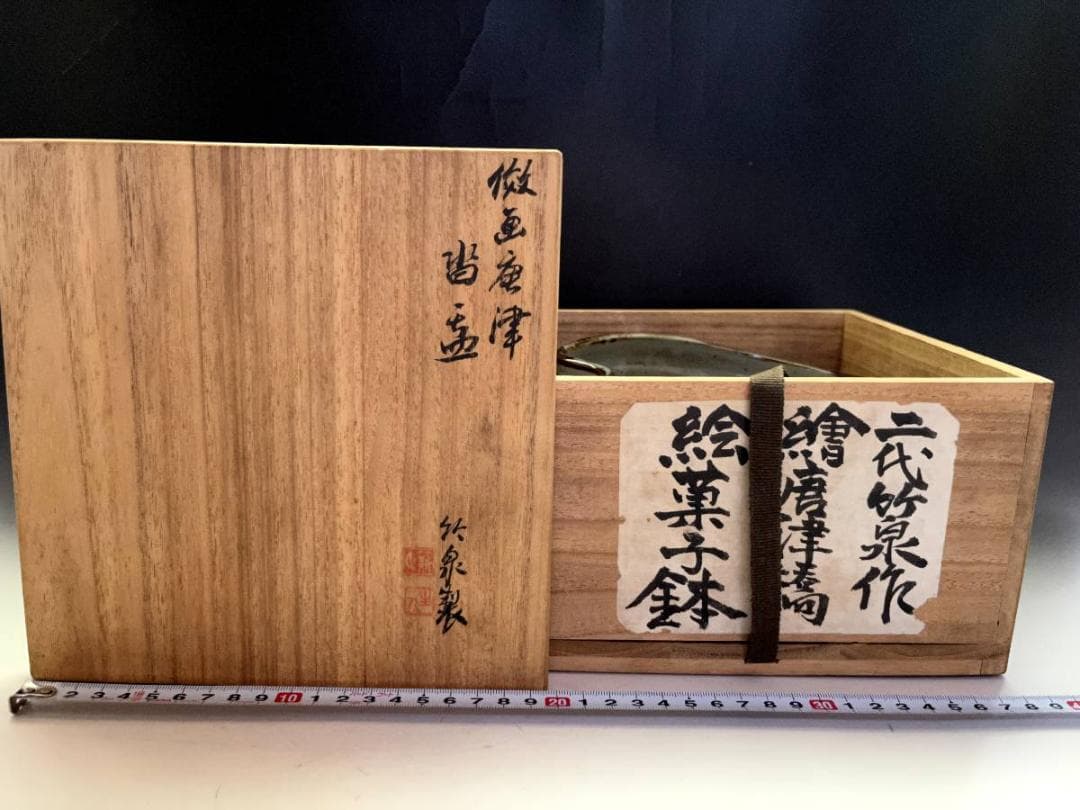 倣画唐津
沓盃
竹泉製
二代竹泉作
繪唐津橋
絵菓子鉢
2 3 4 5 6 7 8 9 10 1 2 3 4 5 6 7 8 9 20 1 2 3 4 5 6 7 8 9 30 1 2 3 4 5 6 7 8 9